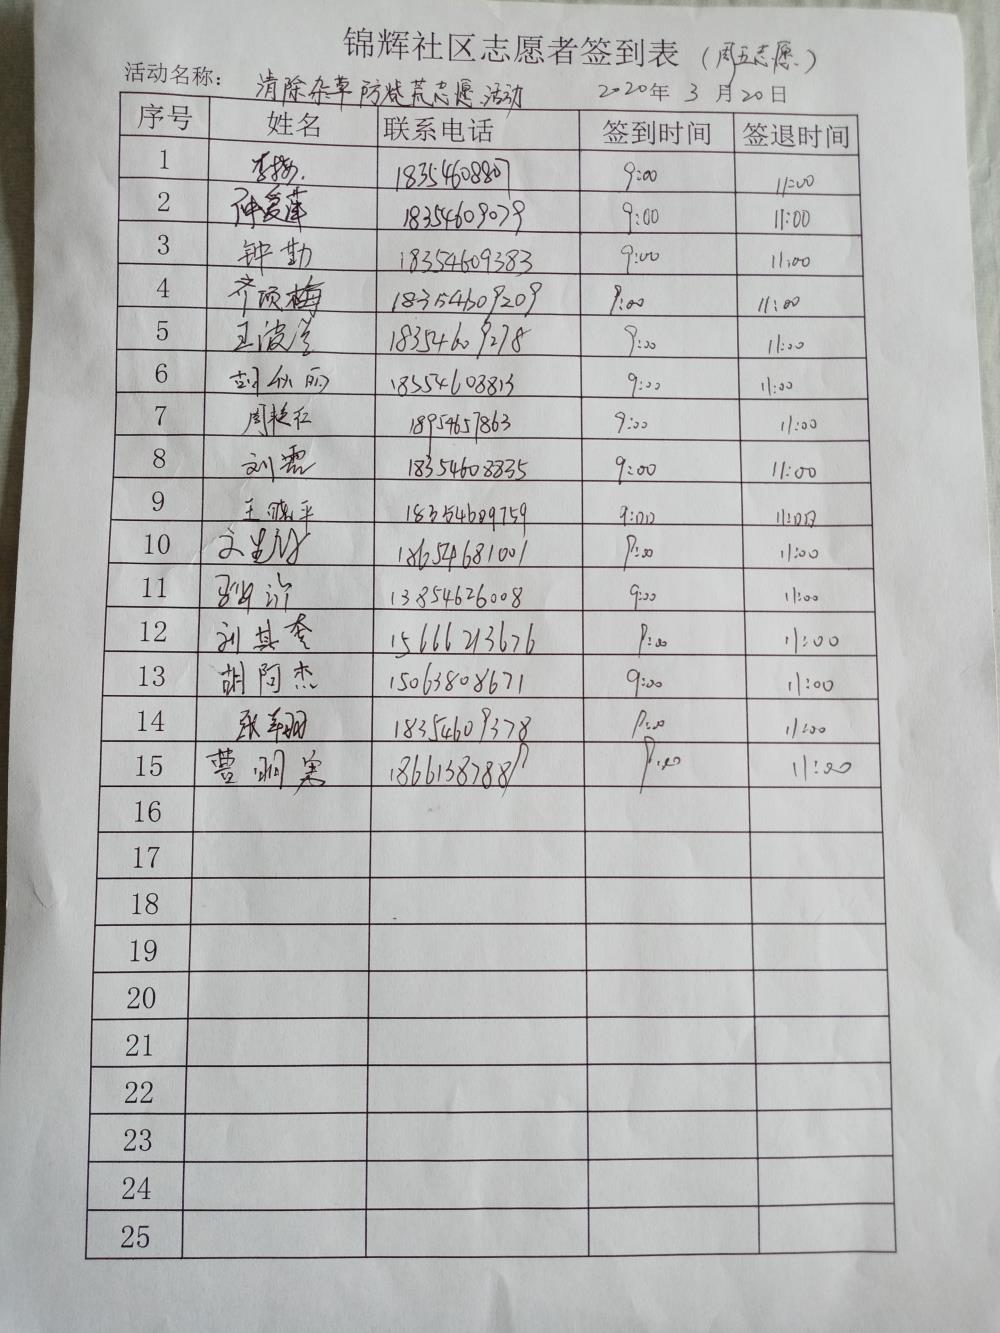 锦辉社区志愿者签到表 (周五志愿.)
活动名称: 清除杂草 防烧荒志愿 活动 2020年 3 月 20日
序号 姓名 联系电话 签到时间 签退时间
1 18354608807 9:00 11:00
2 仲爱萍 18354609079 9:00 11:00
3 钟勤 18354609383 9:00 11:00
4 齐顶梅 18354609209 9:00 11:00
5 王波 18354609278 9:00 11:00
6 丽 18354608813 9:00 11:00
7 周艳红 18954657863 9:00 11:00
8 刘霞 18354608835 9:00 11:00
9 王晓平 18354609759 9:00 11:00
10 18654681001 9:00 11:00
11 13854626008 9:00 11:00
12 刘其奎 15666213676 9:00 11:00
13 胡阿杰 15063808671 9:00 11:00
14 张翔 18354609378 9:00 11:00
15 曹 18661387889 9:00 11:00
16
17
18
19
20
21
22
23
24
25